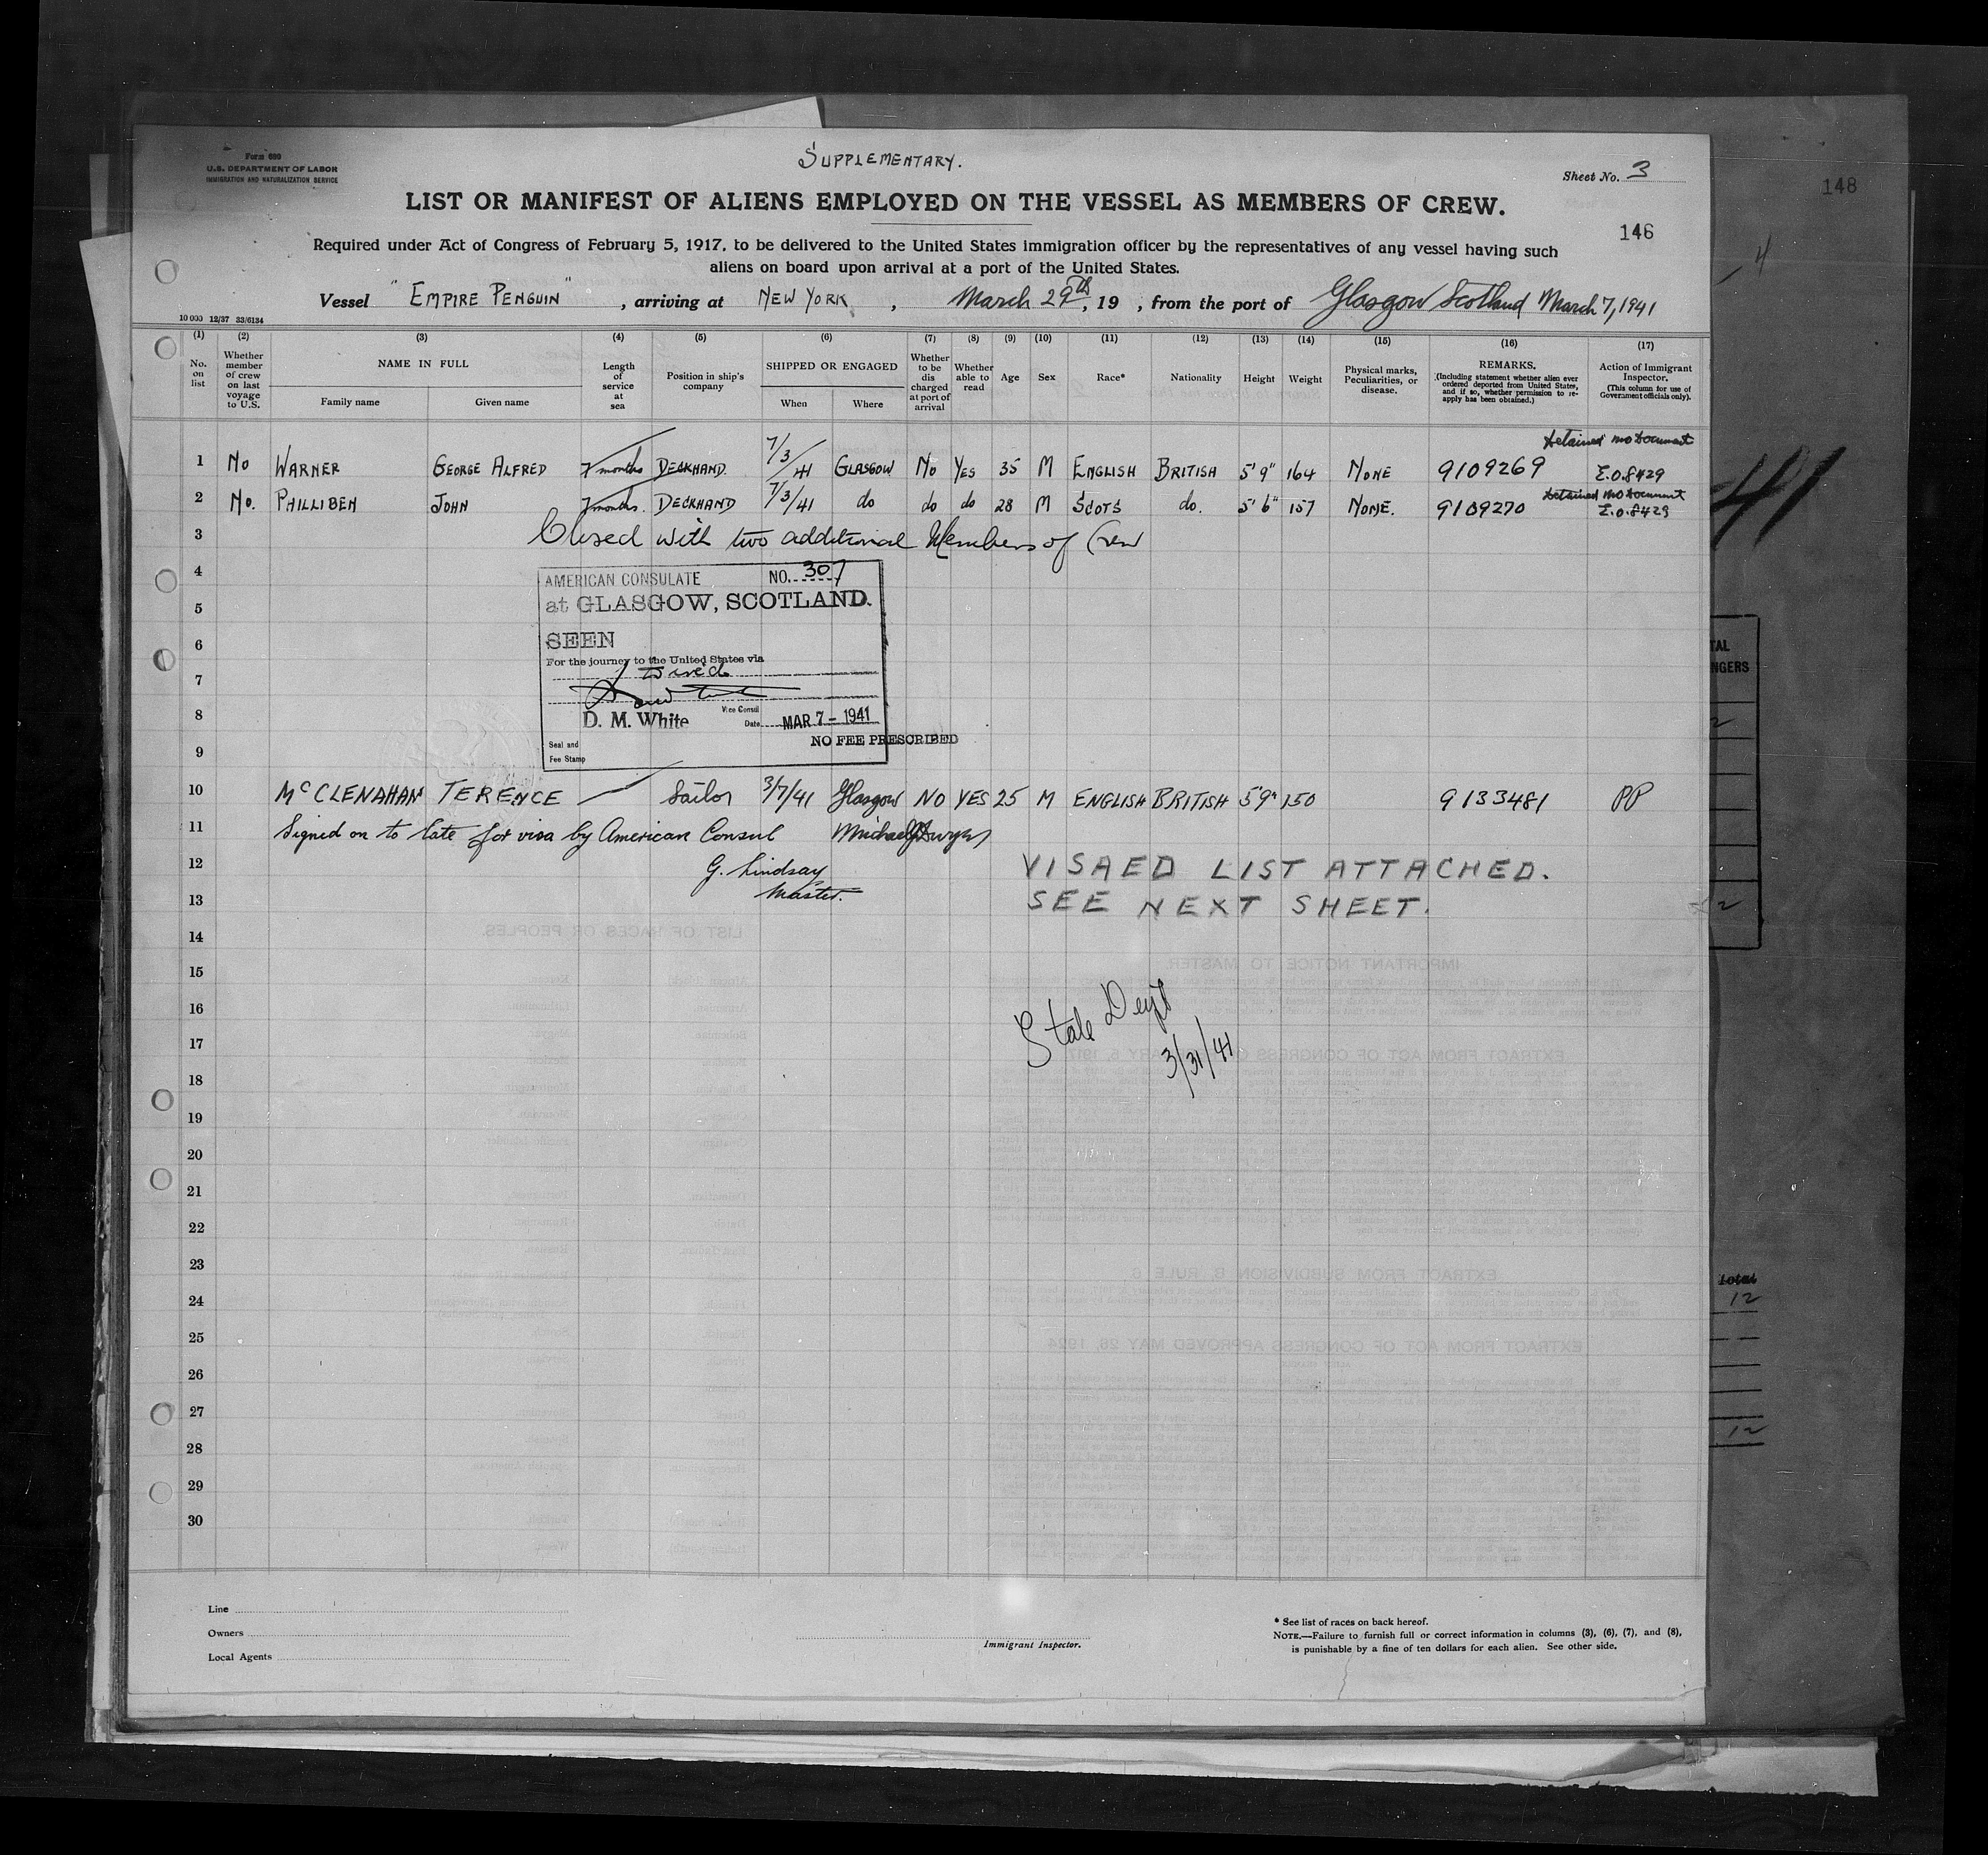 Form 689
U.S. DEPARTMENT OF LABOR
IMMIGRATION AND NATURALIZATION SERVICE
SUPPLEMENTARY.
Sheet No. 3
148
LIST OR MANIFEST OF ALIENS EMPLOYED ON THE VESSEL AS MEMBERS OF CREW.
146
Required under Act of Congress of February 5, 1917, to be delivered to the United States immigration officer by the representatives of any vessel having such
aliens on board upon arrival at a port of the United States.
Vessel "EMPIRE PENGUIN", arriving at NEW YORK, March 29th, 19 , from the port of Glasgow Scotland March 7, 1941
10 000 12/37 33/6134
(1) (2) (3) (4) (5) (6) (7) (8) (9) (10) (11) (12) (13) (14) (15) (16) (17)
No. on list
Whether member of crew on last voyage to U.S.
NAME IN FULL
Family name
Given name
Length of service at sea
Position in ship's company
SHIPPED OR ENGAGED
When
Where
Whether to be dis charged at port of arrival
Whether able to read
Age
Sex
Race*
Nationality
Height
Weight
Physical marks, Peculiarities, or disease.
REMARKS.
(Including statement whether alien ever ordered deported from United States, and if so, whether permission to re-apply has been obtained.)
Action of Immigrant Inspector.
(This column for use of Government officials only).
Detained no Document
1 No WARNER GEORGE ALFRED 7 months DECKHAND. 7/3/41 GLASGOW No YES 35 M ENGLISH BRITISH 5'9" 164 NONE 9109269 E.O.8429
Detained no Document
2 No. PHILLIBEN JOHN 7 months. DECKHAND 7/3/41 do do do 28 M SCOTS do. 5'6" 157 NONE. 9109270 E.O.8429
3 Closed with two additional Members of Crew
4
AMERICAN CONSULATE NO. 307
5
at GLASGOW, SCOTLAND.
6
SEEN
For the journey to the United States via
7
8
D. M. White Vice Consul
Date MAR 7 - 1941
9
NO FEE PRESCRIBED
Seal and
Fee Stamp
10 McCLENAHAN TERENCE Sailor 3/7/41 Glasgow NO YES 25 M ENGLISH BRITISH 5'9" 150 9133481 PP
11 Signed on to late for visa by American Consul
12 G. Lindsay VISAED LIST ATTACHED.
13 Master. SEE NEXT SHEET.
14
15
16 State Dept
17 3/31/41
18
19
20
21
22
23
24
25
26
27
28
29
30
Line
Owners
Local Agents
Immigrant Inspector.
* See list of races on back hereof.
NOTE.—Failure to furnish full or correct information in columns (3), (6), (7), and (8),
is punishable by a fine of ten dollars for each alien. See other side.
4
41
TAL
NGERS
2
2
Total
12
12